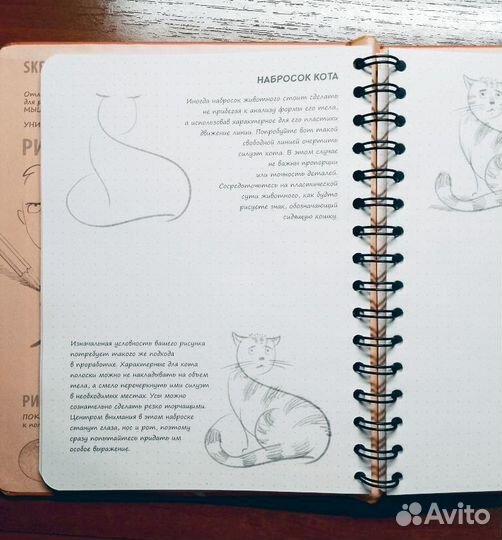 SK
НАБРОСОК КОТА
Иногда набросок животного стоит сделать
не прибегая к анализу формы его тела,
а использовав характерное для его пластики
движение линии. Попробуйте вот такой
свободной линией очертить
силуэт кота. В этом случае
не важны пропорции
или точность деталей.
Сосредоточьтесь на пластической
сути животного, как будто
рисуете знак, обозначающий
сидящую кошку.
Изначальная условность вашего рисунка
потребует такого же подхода
в проработке. Характерные для кота
полоски можно не накладывать на объем
тела, а смело перечеркнуть ими силуэт
в необходимых местах. Усы можно
сознательно сделать резко торчащими.
Центром внимания в этом наброске
станут глаза, нос и рот, поэтому
сразу попытайтесь придать им
особое выражение.
Avito